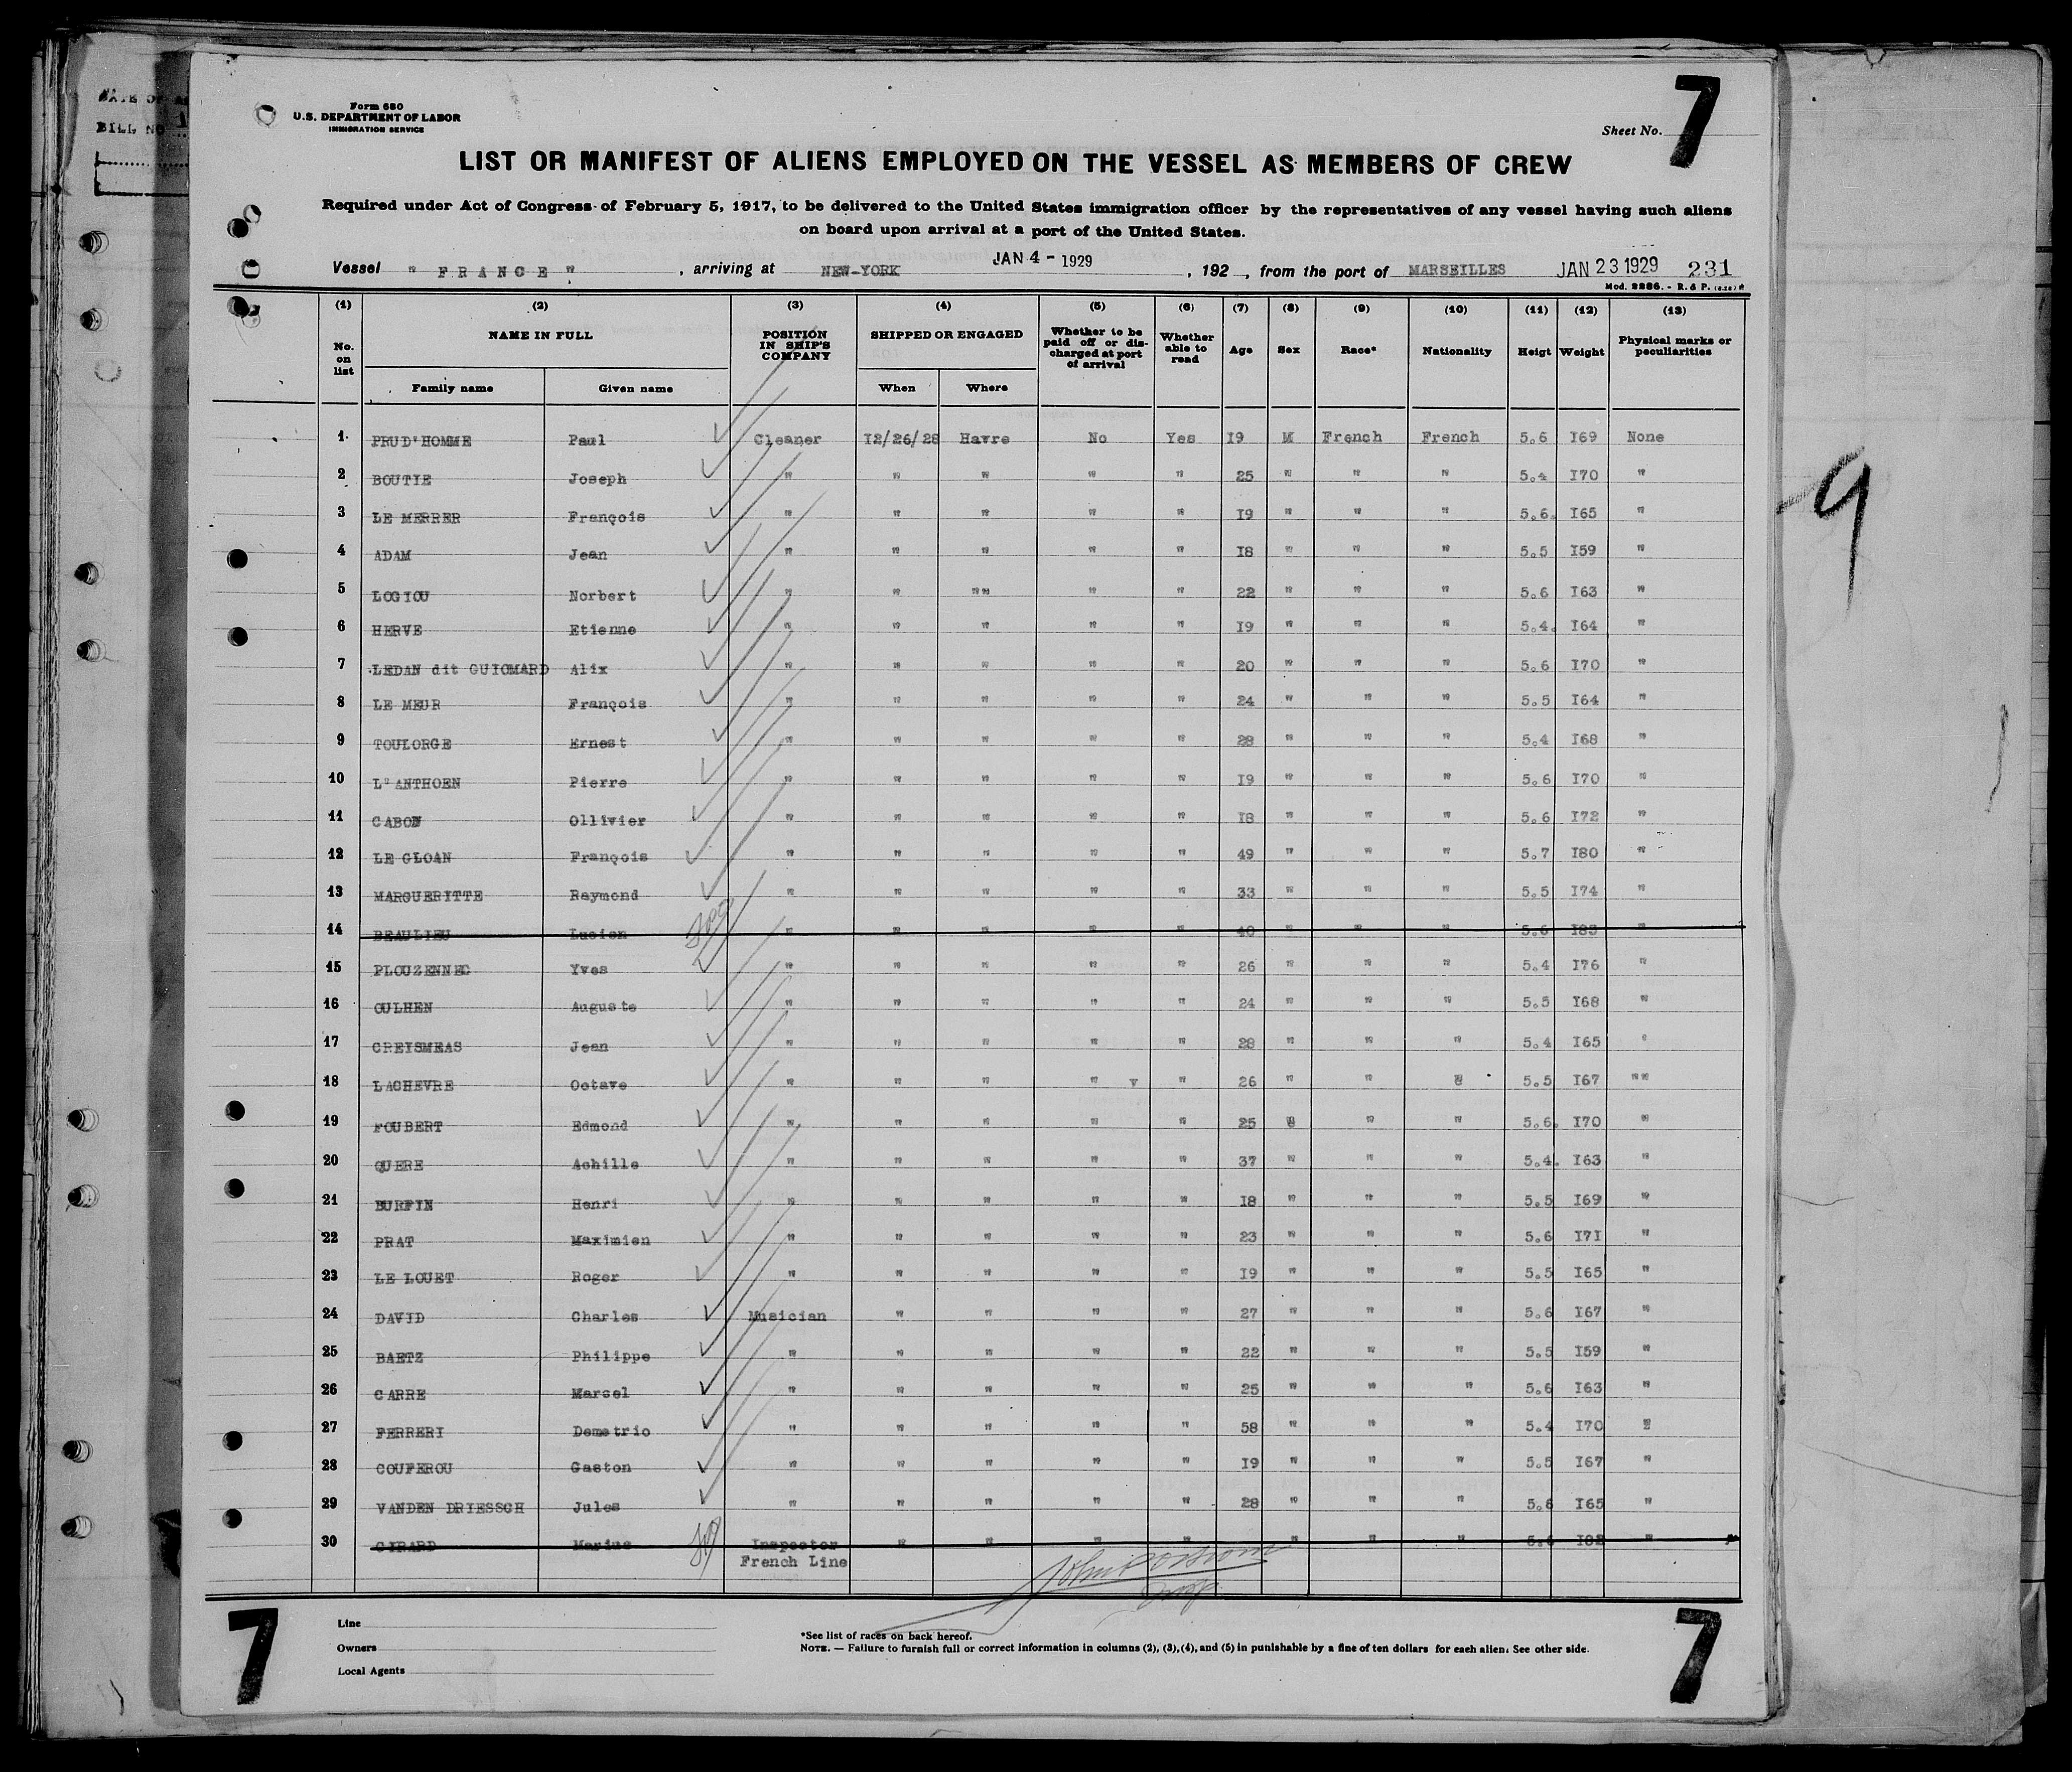 Form 680
U.S. DEPARTMENT OF LABOR
IMMIGRATION SERVICE
Sheet No. 7
LIST OR MANIFEST OF ALIENS EMPLOYED ON THE VESSEL AS MEMBERS OF CREW
Required under Act of Congress of February 5, 1917, to be delivered to the United States immigration officer by the representatives of any vessel having such aliens
on board upon arrival at a port of the United States.
Vessel " FRANCE ", arriving at NEW-YORK JAN 4 - 1929, 192 , from the port of MARSEILLES JAN 23 1929 231
Mod. 2286. - R. & P.
(1) (2) (3) (4) (5) (6) (7) (8) (9) (10) (11) (12) (13)
No. on list NAME IN FULL Family name Given name POSITION IN SHIP'S COMPANY SHIPPED OR ENGAGED When Where Whether to be paid off or discharged at port of arrival Whether able to read Age Sex Race* Nationality Heigt Weight Physical marks or peculiarities
1 PRUD'HOMME Paul Cleaner I2/26/28 Havre No Yes I9 M French French 5.6 I69 None
2 BOUTIE Joseph " " " " " 25 " " " 5.4 I70 "
3 LE MERRER François " " " " " I9 " " " 5.6. I65 "
4 ADAM Jean " " " " " I8 " " " 5.5 I59 "
5 LOGIOU Norbert " " "" " " 22 " " " 5.6 I63 "
6 HERVE Etienne " " " " " I9 " " " 5.4. I64 "
7 LEDAN dit GUIOMARD Alix " " " " " 20 " " " 5.6 I70 "
8 LE MEUR François " " " " " 24 " " " 5.5 I64 "
9 TOULORGE Ernest " " " " " 28 " " " 5.4 I68 "
10 L'ANTHOEN Pierre " " " " " I9 " " " 5.6 I70 "
11 CABON Ollivier " " " " " I8 " " " 5.6 I72 "
12 LE GLOAN François " " " " " 49 " " " 5.7 I80 "
13 MARGUERITTE Raymond " " " " " 33 " " " 5.5 I74 "
14 BEAULIEU Lucien " " " " " 40 " " " 5.6 I83 "
15 PLOUZENNEC Yves " " " " " 26 " " " 5.4 I76 "
16 OULHEN Auguste " " " " " 24 " " " 5.5 I68 "
17 CREISMEAS Jean " " " " " 28 " " " 5.4 I65 "
18 LACHEVRE Octave " " " " " 26 " " " 5.5 I67 ""
19 FOUBERT Edmond " " " " " 25 " " " 5.6. I70 "
20 QUERE Achille " " " " " 37 " " " 5.4. I63 "
21 BURFIN Henri " " " " " I8 " " " 5.5 I69 "
22 PRAT Maximien " " " " " 23 " " " 5.6 I7I "
23 LE LOUET Roger " " " " " I9 " " " 5.5 I65 "
24 DAVID Charles Musician " " " " 27 " " " 5.6 I67 "
25 BAETZ Philippe " " " " " 22 " " " 5.5 I59 "
26 CARRE Marcel " " " " " 25 " " " 5.6 I63 "
27 FERRERI Demetrio " " " " " 58 " " " 5.4 I70 "
28 COUFEROU Gaston " " " " " I9 " " " 5.5 I67 "
29 VANDEN DRIESSCH Jules " " " " " 28 " " " 5.6 I65 "
30 GIRARD Marius Inspector French Line " " " " " " " I82 "
Line
Owners
Local Agents
*See list of races on back hereof.
NOTE. — Failure to furnish full or correct information in columns (2), (3), (4), and (5) in punishable by a fine of ten dollars for each alien. See other side.
7 7
9
BILL NO